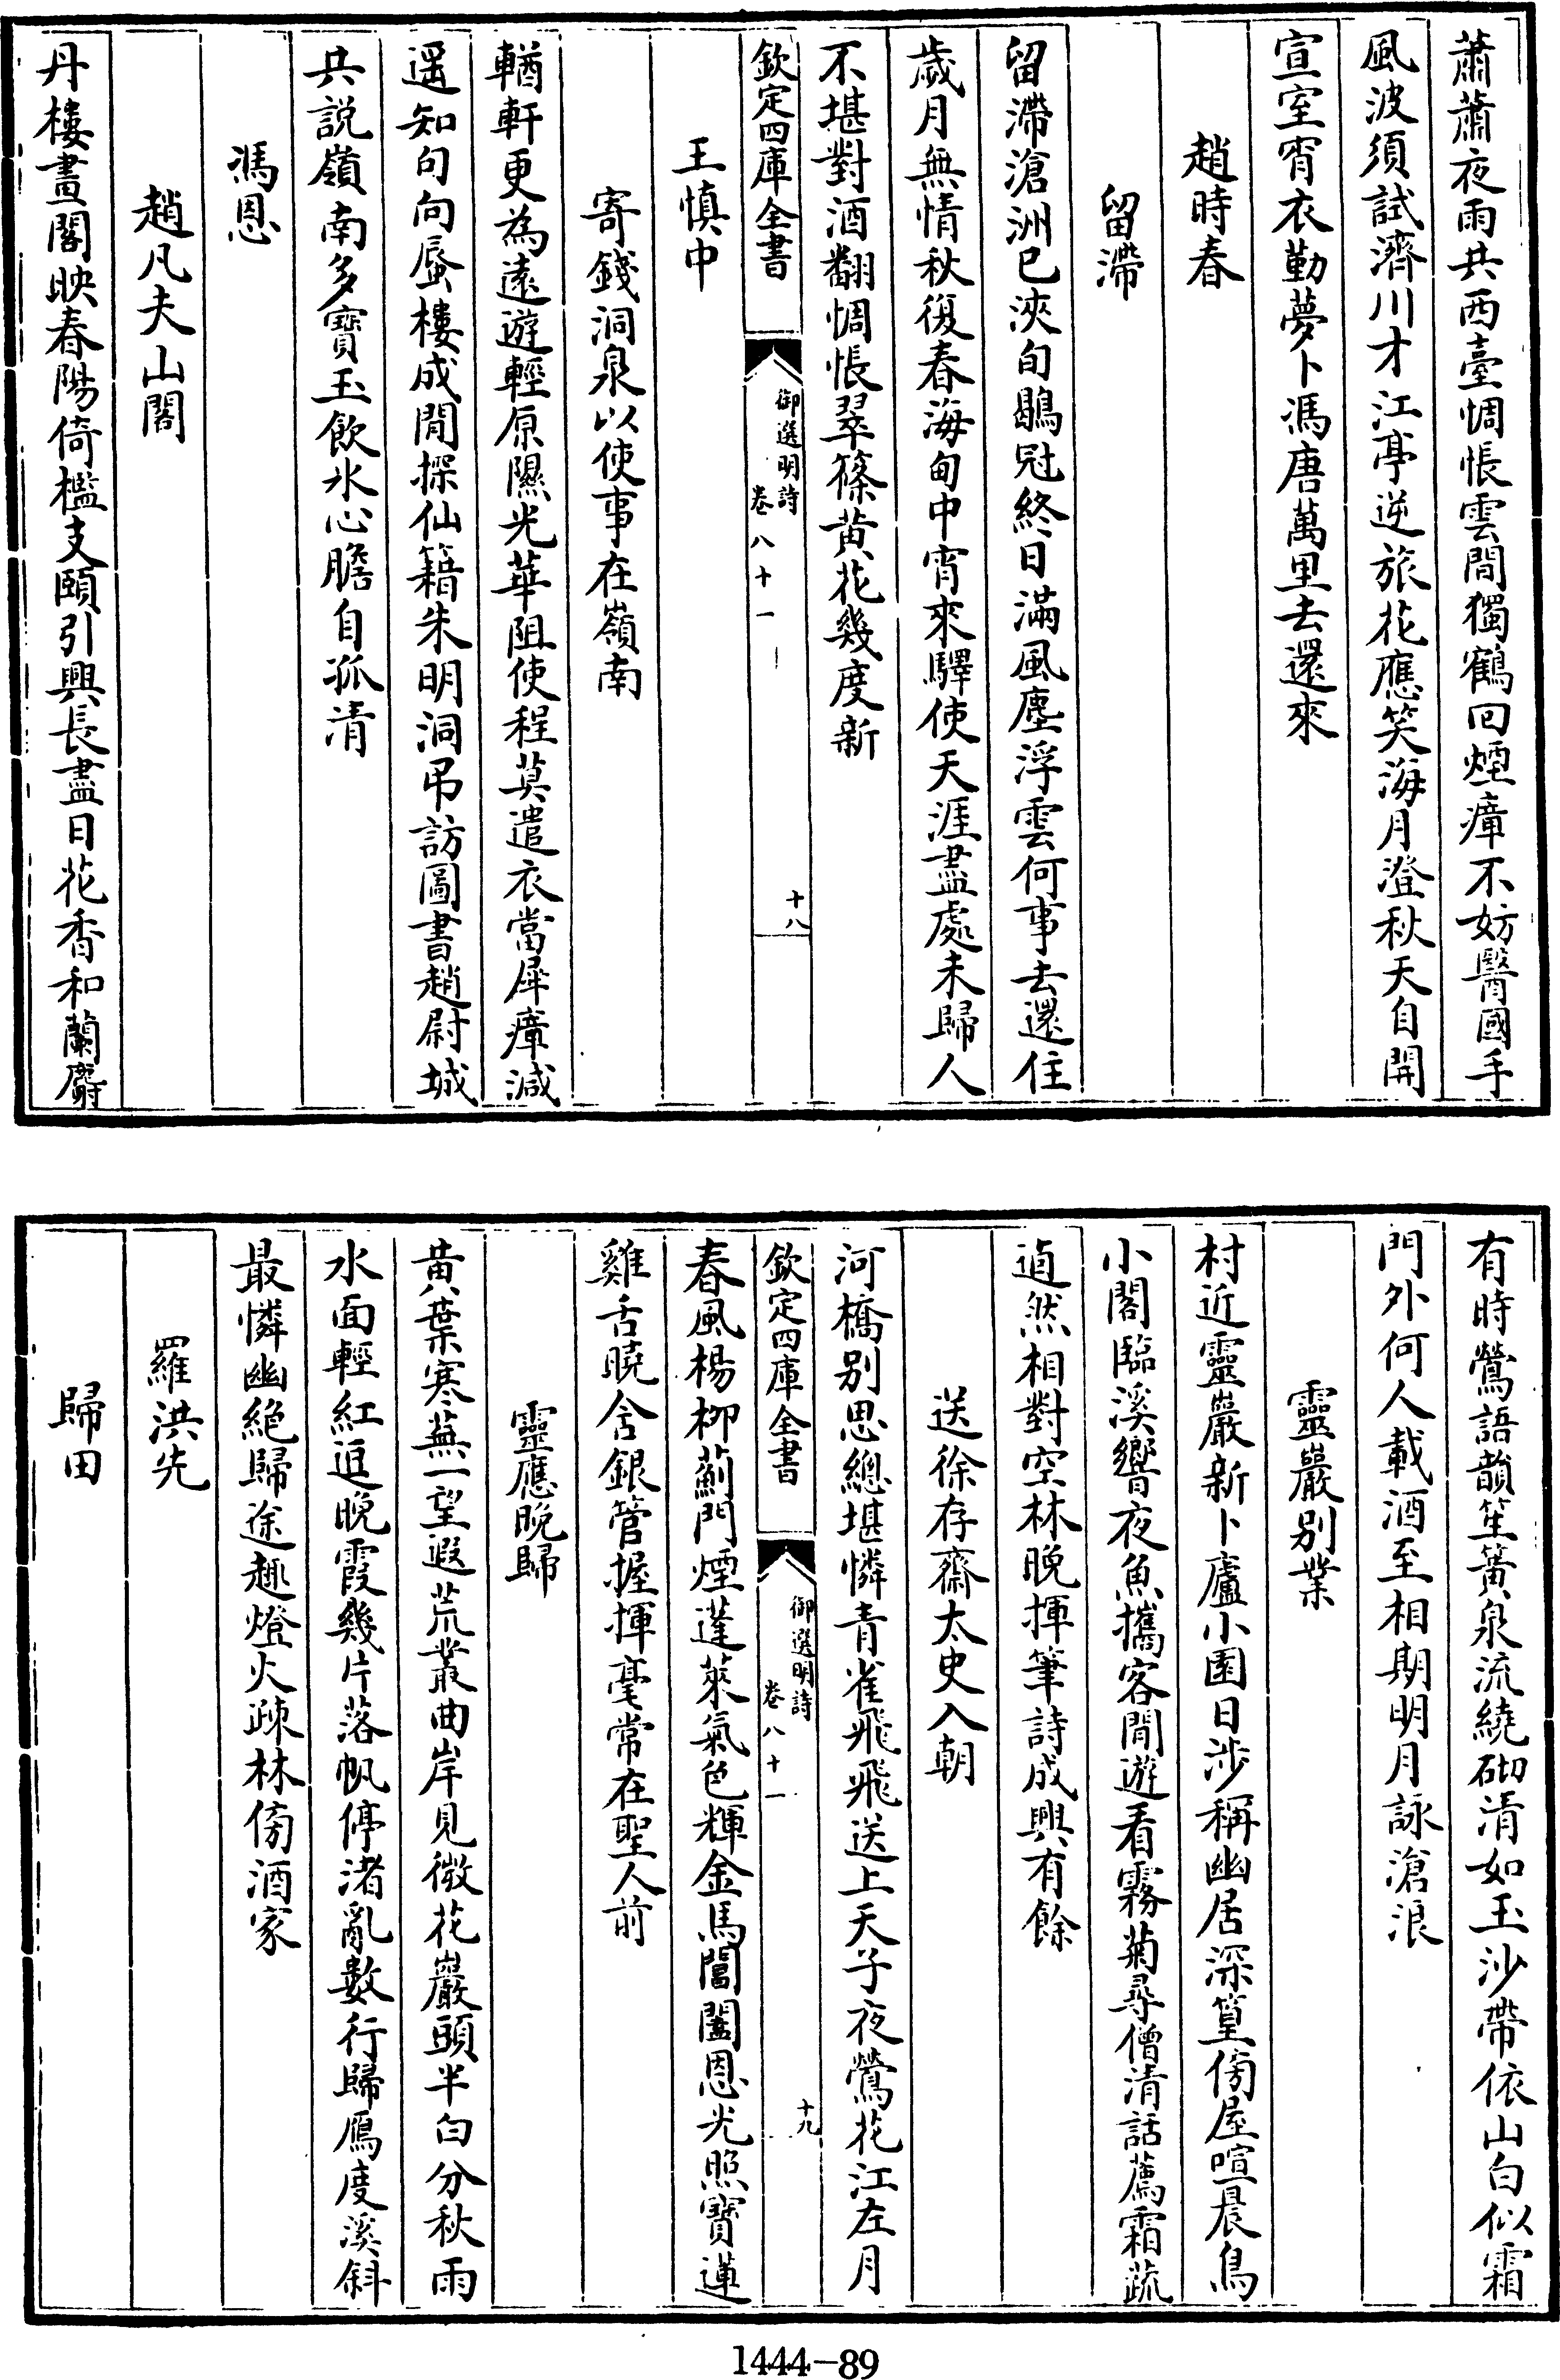 蕭蕭夜雨共西臺惆悵雲間獨鶴回煙瘴不妨醫國手
風波須試濟川才江亭逆旅花應笑海月澄秋天自開
宣室宵衣勤夢卜馮唐萬里去還來
趙時春
留滯
留滯滄洲已浹旬鶡冠終日滿風塵浮雲何事去還住
歲月無情秋復春海甸中宵來驛使天涯盡處未歸人
不堪對酒翻惆悵翠篠黃花幾度新
欽定四庫全書
御選明詩
卷八十一
十八
王慎中
寄錢洞泉以使事在嶺南
輶軒更為遠遊輕原隰光華阻使程莫遣衣當犀瘴減
遥知句向蜃樓成閒探仙籍朱明洞弔訪圖書趙尉城
共說嶺南多寶玉飲氷心膽自孤清
馮恩
趙凡夫山閣
丹樓畫閣映春陽倚檻支頤引興長盡日花香和蘭麝
有時鶯語韻笙簧泉流繞砌清如玉沙帶依山白似霜
門外何人載酒至相期明月詠滄浪
靈巖別業
村近靈巖新卜廬小園日涉稱幽居深篁傍屋喧晨鳥
小閣臨溪響夜魚攜客閒遊看霧菊尋僧清話薦霜蔬
逌然相對空林晚揮筆詩成興有餘
送徐存齋太史入朝
河橋別思總堪憐青雀飛飛送上天子夜鶯花江左月
欽定四庫全書
御選明詩
卷八十一
十九
春風楊柳薊門煙蓬萊氣色輝金馬閶闔恩光照寶蓮
雞舌曉含銀管握揮毫常在聖人前
靈應晚歸
黃葉寒蕪一望遐荒叢曲岸見微花巖頭半白分秋雨
水面輕紅逗晚霞幾片落帆停渚亂數行歸鴈度溪斜
最憐幽絕歸途趣燈火疎林傍酒家
羅洪先
歸田
1444-89